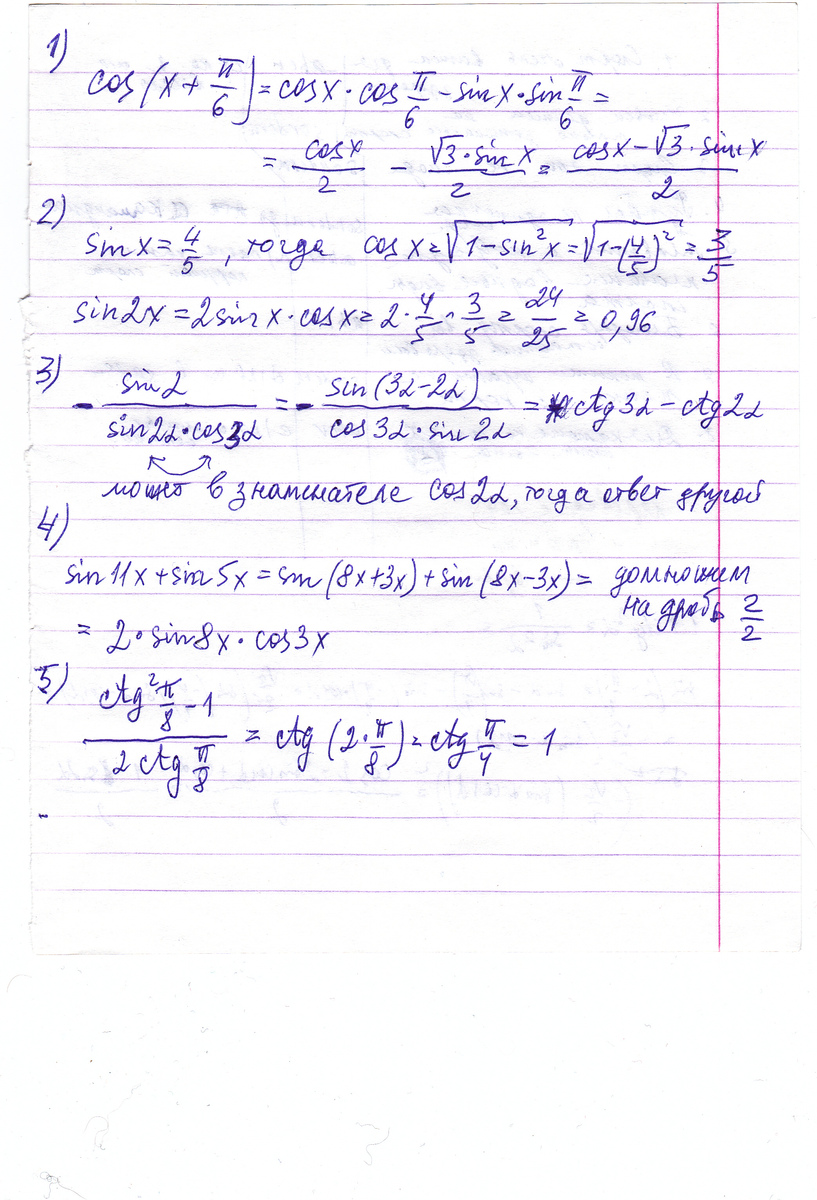 1)
cos(x + π/6) = cosx · cos π/6 - sinx · sin π/6 =
= cosx/2 - √3·sin x/2 = cosx - √3 · sin x/2
2)
sin x = 4/5, тогда cos x = √1-sin²x = √1-(4/5)² = 3/5
sin2x = 2sin x · cosx = 2·4/5·3/5 = 24/25 = 0,96
3)
- sin α/sin2α·cos3α = - sin(3α-2α)/cos 3α·sin 2α = ctg3α - ctg2α
может в знаменателе cos2α, тогда ответ другой
4)
sin 11x + sin 5x = sin (8x+3x) + sin (8x-3x) = домножим
на дробь 2/2
= 2·sin8x·cos3x
5)
ctg² π/8 - 1/2 ctg π/8 = ctg (2·π/8) = ctg π/4 = 1